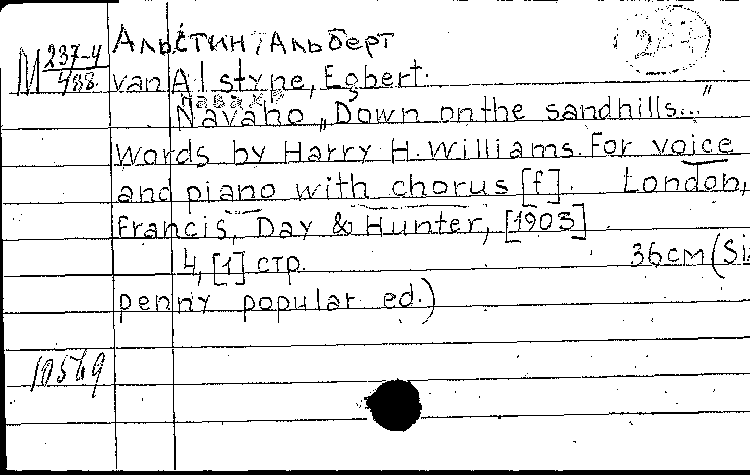 Альстин, Альберт
М 237-4
488
van Alstyne, Egbert.
Наваха
Navaho „Down on the sandhills..."
Words by Harry H. Williams. For voice
and piano with chorus [f]. London,
Francis, Day & Hunter, [1903]
4, [1] стр. 36cm (Six
penny popular ed.)
10569